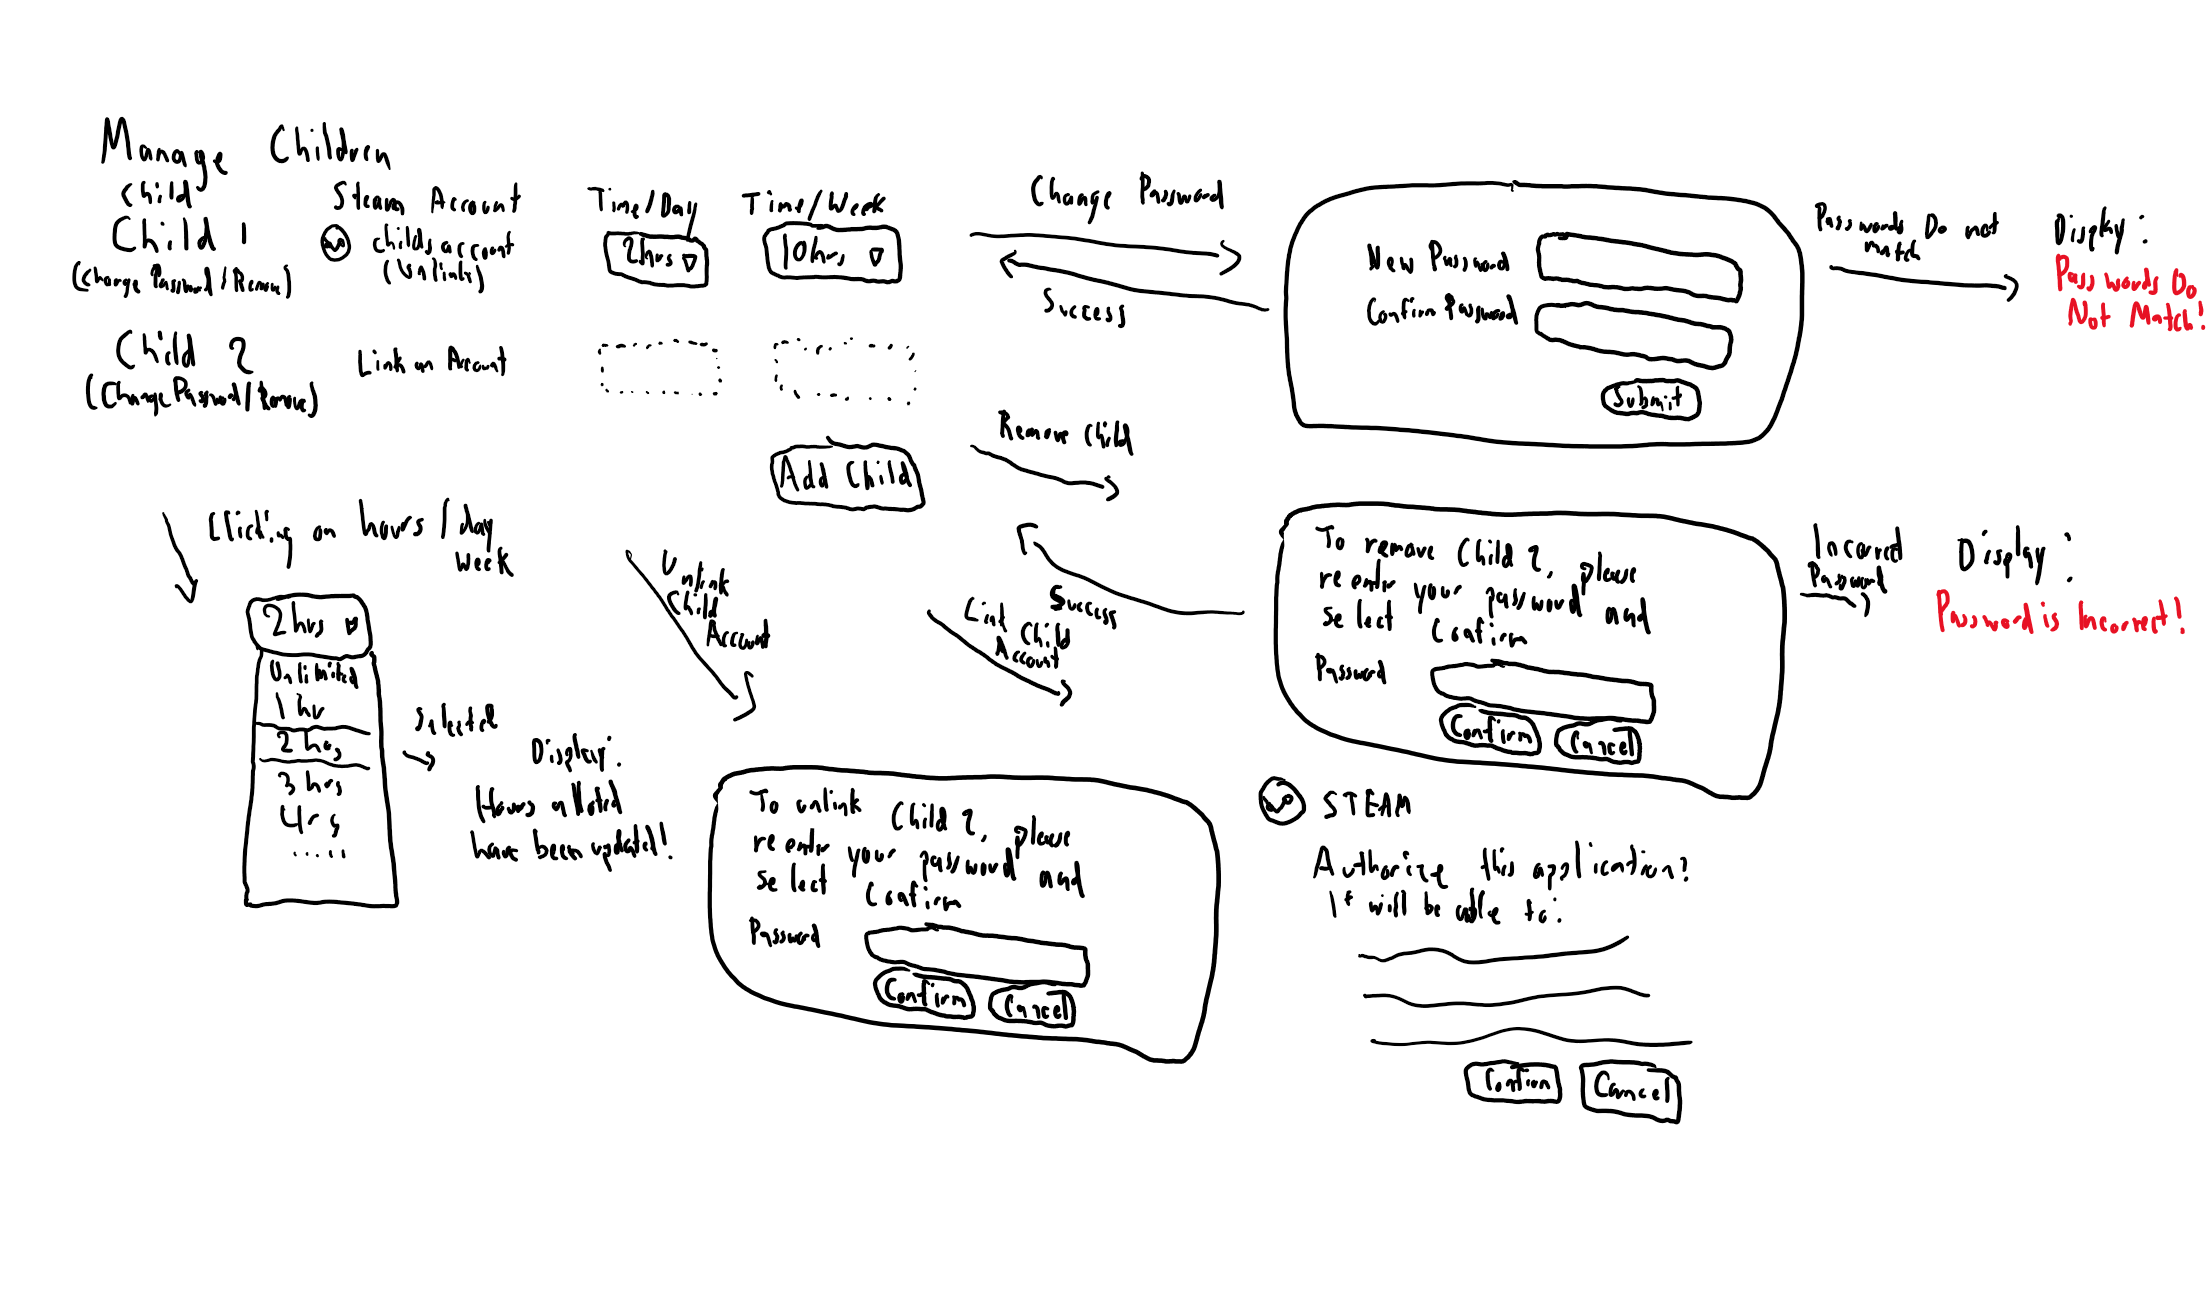 Manage Children
Child
Steam Account
Time/Day
Time/Week
Child 1
childs account
(Unlink)
2hrs
10hrs
(Change Password/Remove)
Child 2
Link an Account
(Change Password/Remove)
Add Child
Change Password
Success
New Password
Confirm Password
Submit
Passwords Do not
match
Display:
Passwords Do
Not Match!
Remove Child
Success
To remove Child 2, please
re enter your password and
select Confirm
Password
Confirm
Cancel
Incorrect
Password
Display:
Password is Incorrect!
Clicking on hours/day
week
2hrs
Unlimited
1 hr
2 hrs
3 hrs
4rs
.....
Selected
Display:
Hours allotted
have been updated!
Unlink
Child
Account
To unlink Child 2, please
re enter your password and
select Confirm
Password
Confirm
Cancel
Link Child
Account
STEAM
Authorize this application?
It will be able to:
Confirm
Cancel